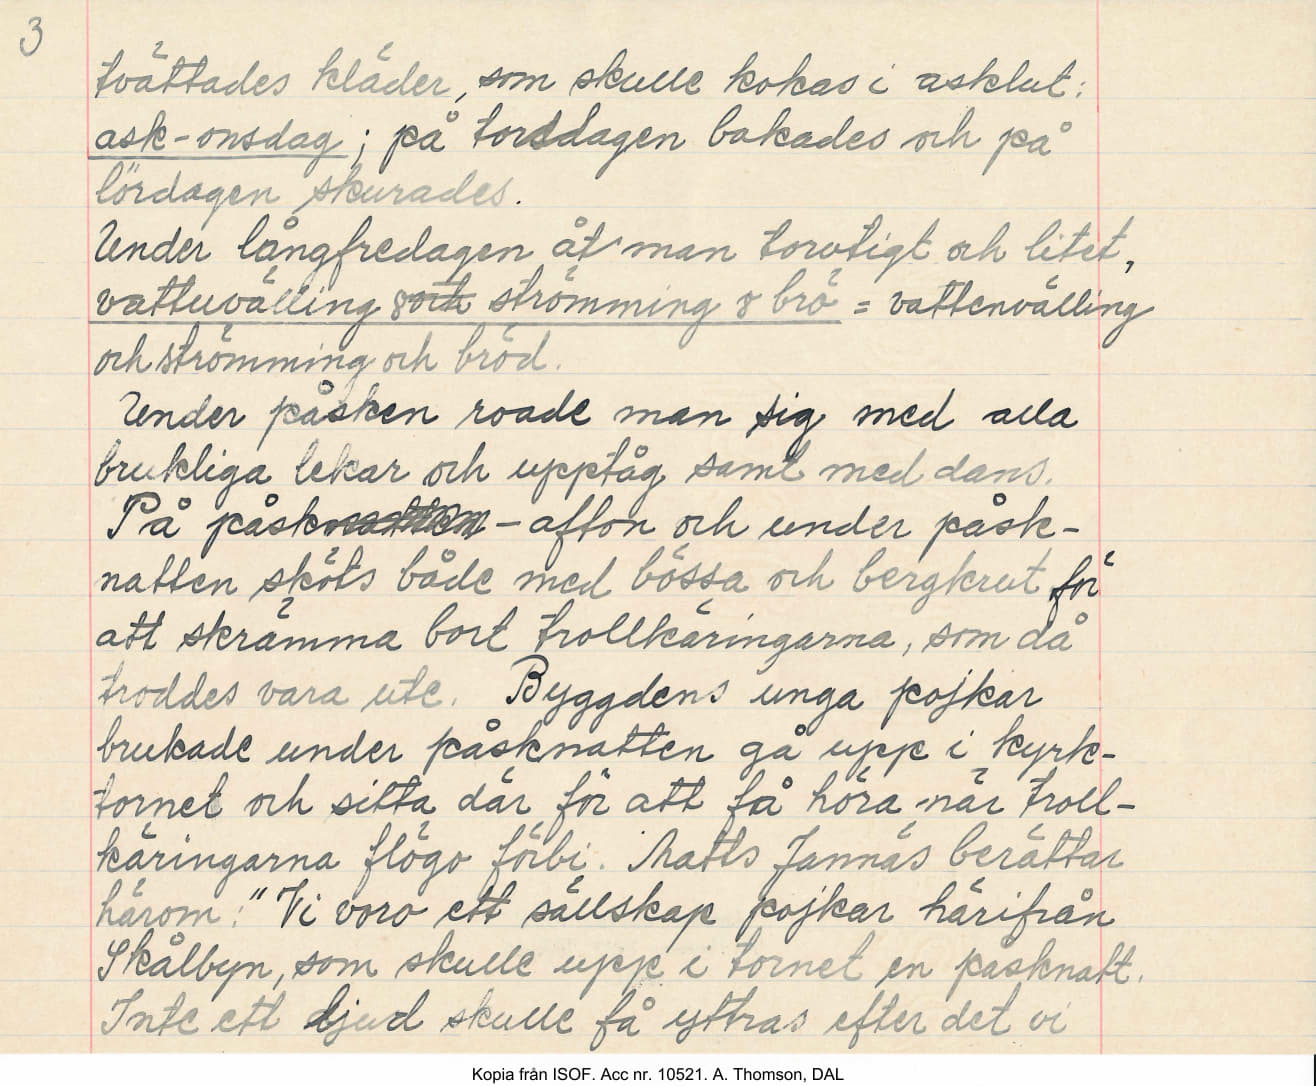 3
tvättades kläder, som skulle kokas i asklut:
ask-onsdag; på torsdagen bakades och på
lördagen skurades.
Under långfredagen åt man torvtigt och litet,
vattuvälling & strömming & brö = vattenvälling
och strömming och bröd.
Under påsken roade man sig med alla
brukliga lekar och upptåg samt med dans.
På påsk-afton och under påsk-
natten sköts både med bössa och bergkrut för
att skrämma bort trollkäringarna, som då
troddes vara ute. Byggdens unga pojkar
brukade under påsknatten gå upp i kyrk-
tornet och sitta där för att få höra när troll-
käringarna flögo förbi. Matts Jannäs berättar
härom: "Vi voro ett sällskap pojkar härifrån
Skålbyn, som skulle upp i tornet en påsknatt.
Inte ett ljud skulle få yttras efter det vi
Kopia från ISOF. Acc nr. 10521. A. Thomson, DAL